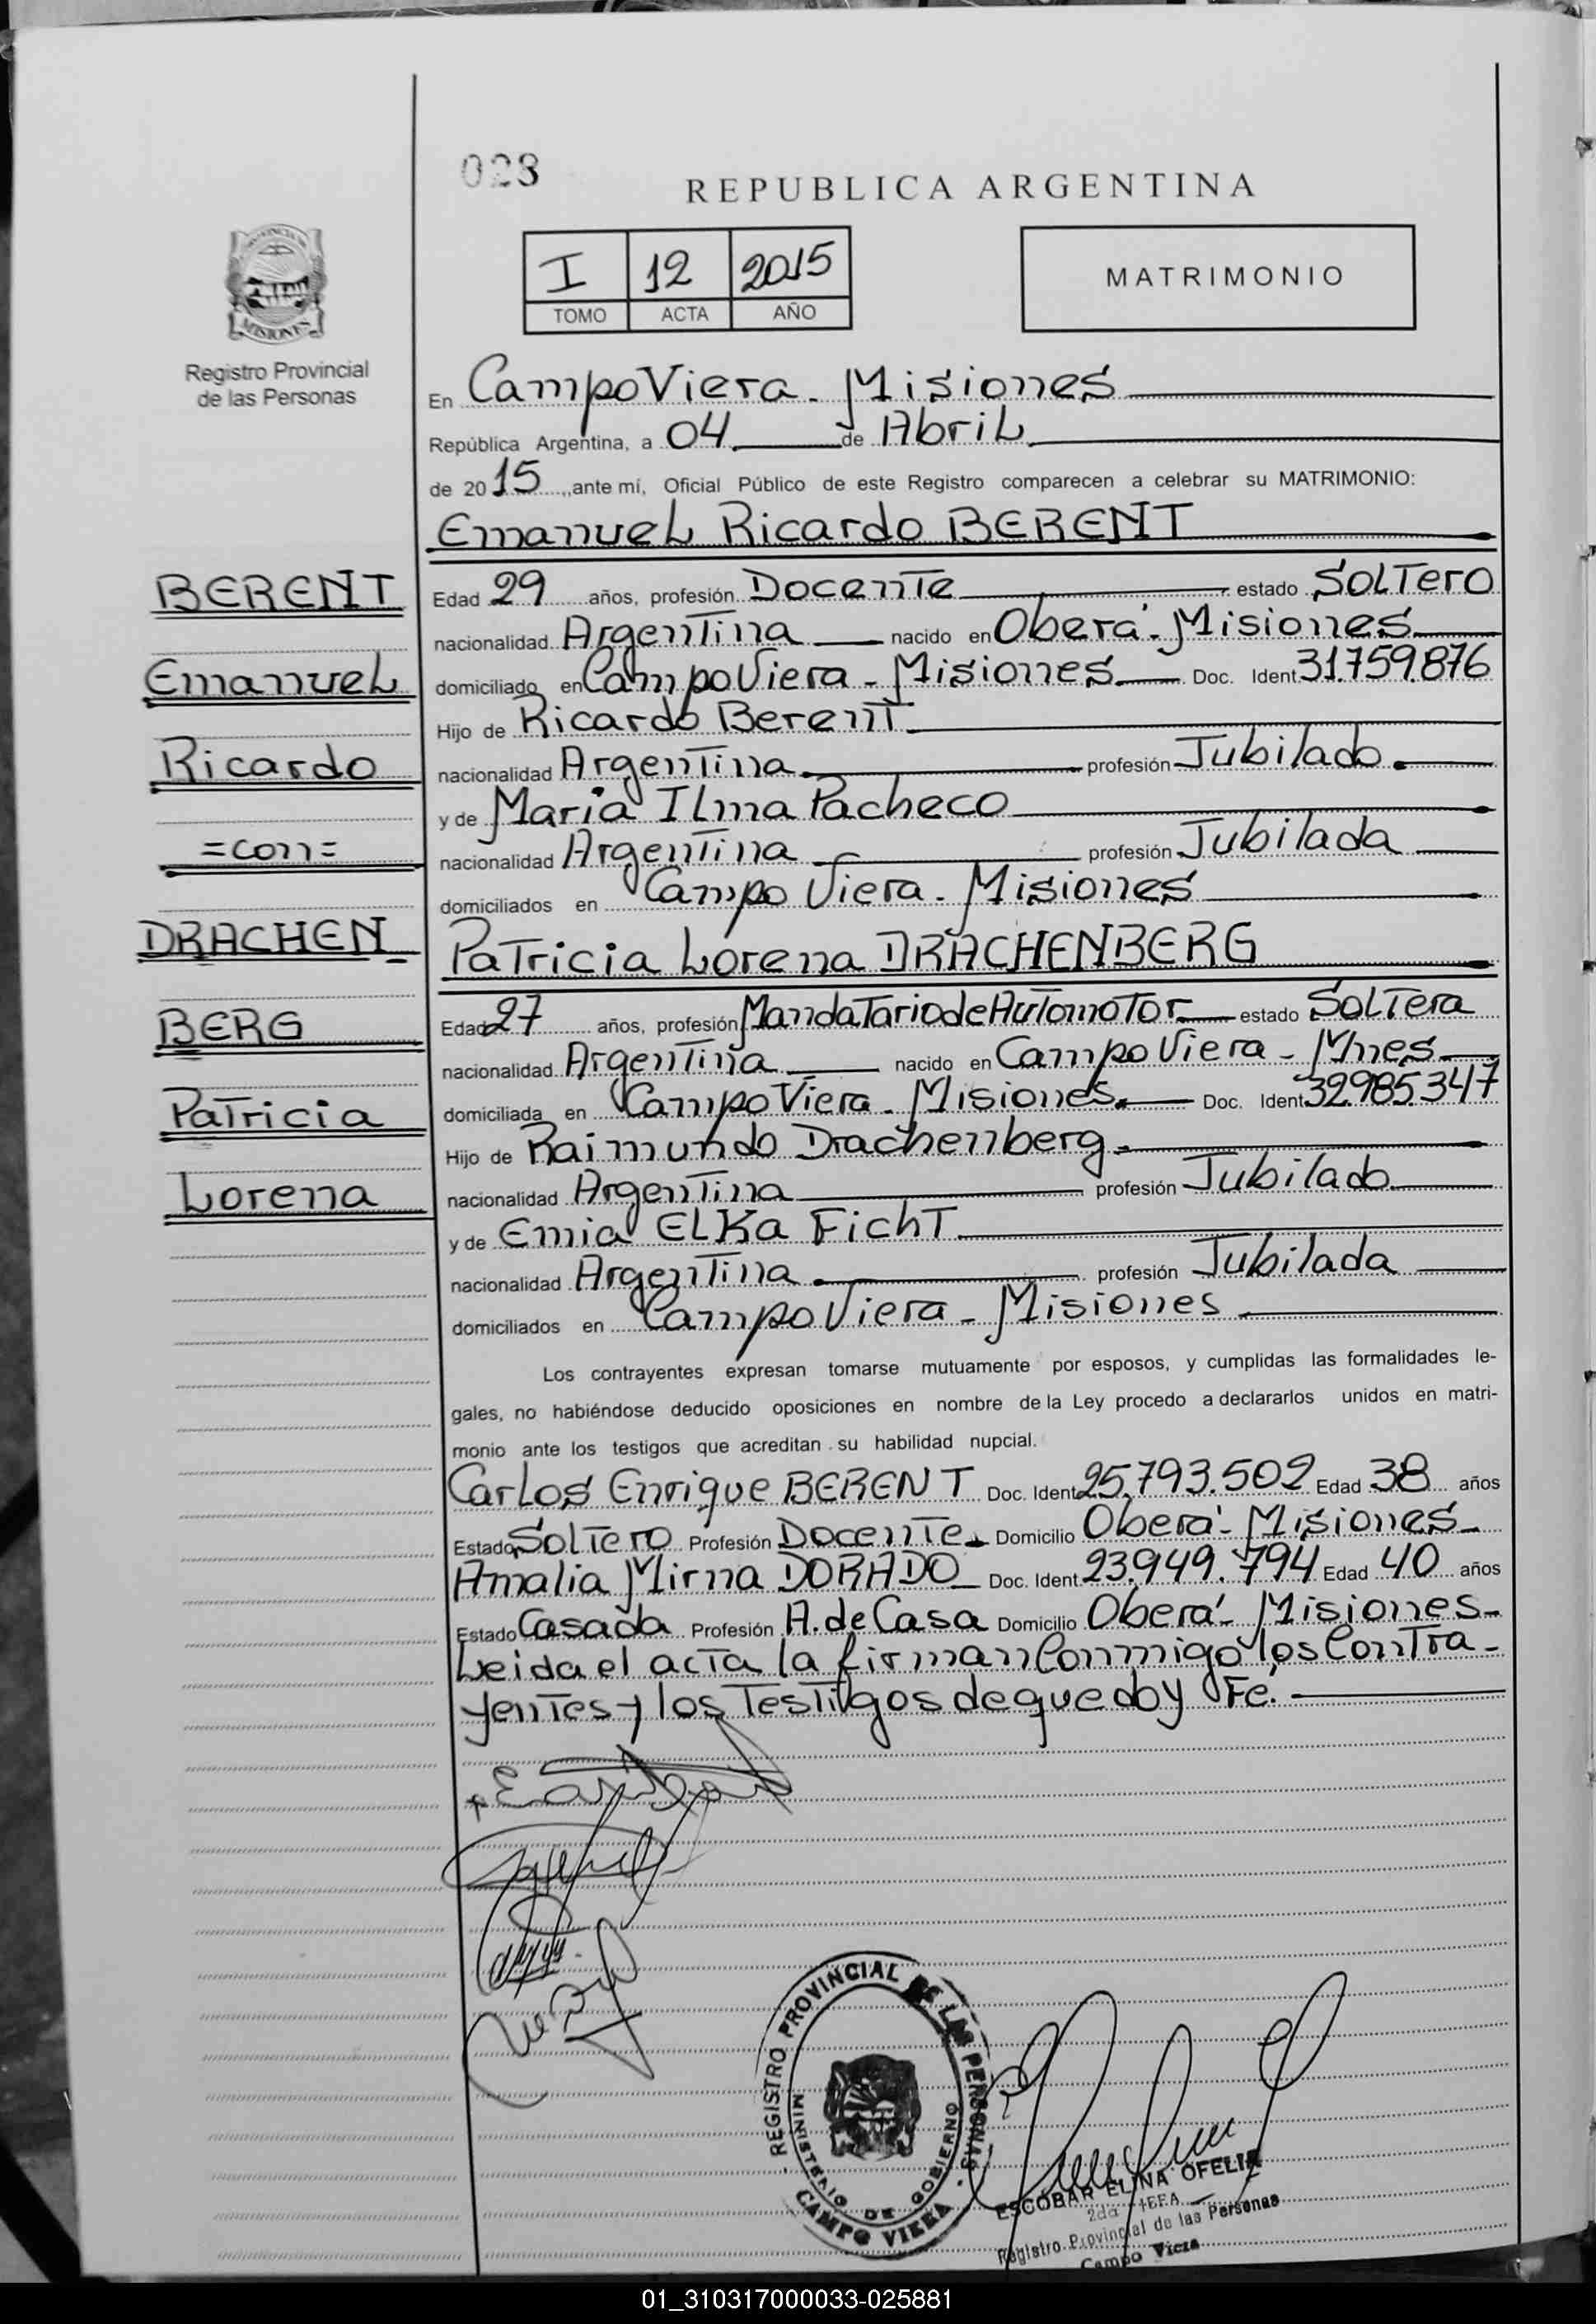 028
REPUBLICA ARGENTINA
I 12 2015
TOMO ACTA AÑO
MATRIMONIO
PROVINCIA DE
MISIONES
Registro Provincial
de las Personas
En Campo Viera - Misiones
República Argentina, a 04 de Abril
de 2015, ante mí, Oficial Público de este Registro comparecen a celebrar su MATRIMONIO:
Emanuel Ricardo BERENT
BERENT
Emanuel
Ricardo
=con=
DRACHEN-
BERG
Patricia
Lorena
Edad 29 años, profesión Docente estado Soltero
nacionalidad Argentina nacido en Oberá - Misiones
domiciliado en Campo Viera - Misiones Doc. Ident 31.759.876
Hijo de Ricardo Berent
nacionalidad Argentina profesión Jubilado.
y de Maria Ilma Pacheco
nacionalidad Argentina profesión Jubilada
domiciliados en Campo Viera - Misiones
Patricia Lorena DRACHENBERG
Edad 27 años, profesión Mandatario de Automotor estado Soltera
nacionalidad Argentina nacido en Campo Viera - Mnes
domiciliada en Campo Viera - Misiones Doc. Ident 32.985.347
Hijo de Raimundo Drachenberg
nacionalidad Argentina profesión Jubilado
y de Emia Elka Ficht
nacionalidad Argentina profesión Jubilada
domiciliados en Campo Viera - Misiones
Los contrayentes expresan tomarse mutuamente por esposos, y cumplidas las formalidades le-
gales, no habiéndose deducido oposiciones en nombre de la Ley procedo a declararlos unidos en matri-
monio ante los testigos que acreditan su habilidad nupcial.
Carlos Enrique BERENT Doc. Ident 25.793.502 Edad 38 años
Estado Soltero Profesión Docente Domicilio Oberá - Misiones
Amalia Mirna DORADO Doc. Ident. 23.949.794 Edad 40 años
Estado Casada Profesión A. de Casa Domicilio Oberá - Misiones-
Leida el acta la firman conmigo los Contra-
yentes y los Testigos de que doy Fé.
REGISTRO PROVINCIAL DE LAS PERSONAS
MINISTERIO DE GOBIERNO
CAMPO VIERA
ESCOBAR ELINA OFELIA
2da JEFA
Registro Provincial de las Personas
Campo Viera
01_310317000033-025881